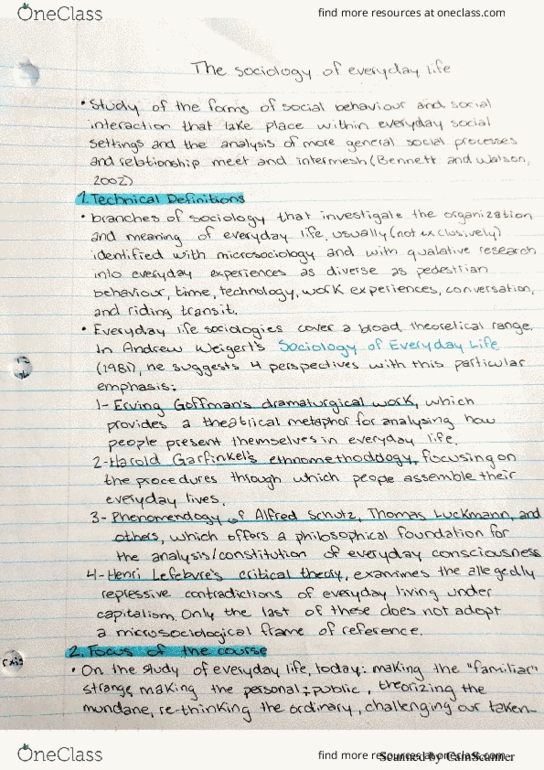 OneClass
find more resources at oneclass.com
The sociology of everyday life
• Study of the forms of social behaviour and social
interaction that take place within everyday social
settings and the analysis of more general social processes
and relationship meet and intermesh (Bennett and Watson,
2002)
1. Technical Definitions
• branches of sociology that investigate the organization
and meaning of everyday life, usually (not exclusively)
identified with microsociology and with qualative research
into everyday experiences as diverse as pedestrian
behaviour, time, technology, work experiences, conversation,
and riding transit.
• Everyday life sociologies cover a broad theoretical range.
In Andrew Weigert's Sociology of Everyday Life
(1981), he suggests 4 perspectives with this particular
emphasis:
1- Erving Goffman's dramaturgical work, which
provides a theatrical metaphor for analysing how
people present themselves in everyday life.
2- Harold Garfinkel's ethnomethodology, focusing on
the procedures through which people assemble their
everyday lives.
3- Phenomendogy of Alfred Schutz, Thomas Luckmann, and
others, which offers a philosophical foundation for
the analysis/constitution of everyday consciousness
4- Henri Lefebvre's critical theory, examines the allegedly
repressive contradictions of everyday living under
capitalism. Only the last of these does not adopt
a microsociological frame of reference.
2. Focus of the course
• On the study of everyday life, today: making the "familiar"
strange, making the personal; public, theorizing the
mundane, re-thinking the ordinary, challenging our taken-
OneClass
find more resources at oneclass.com
Scanned by CamScanner